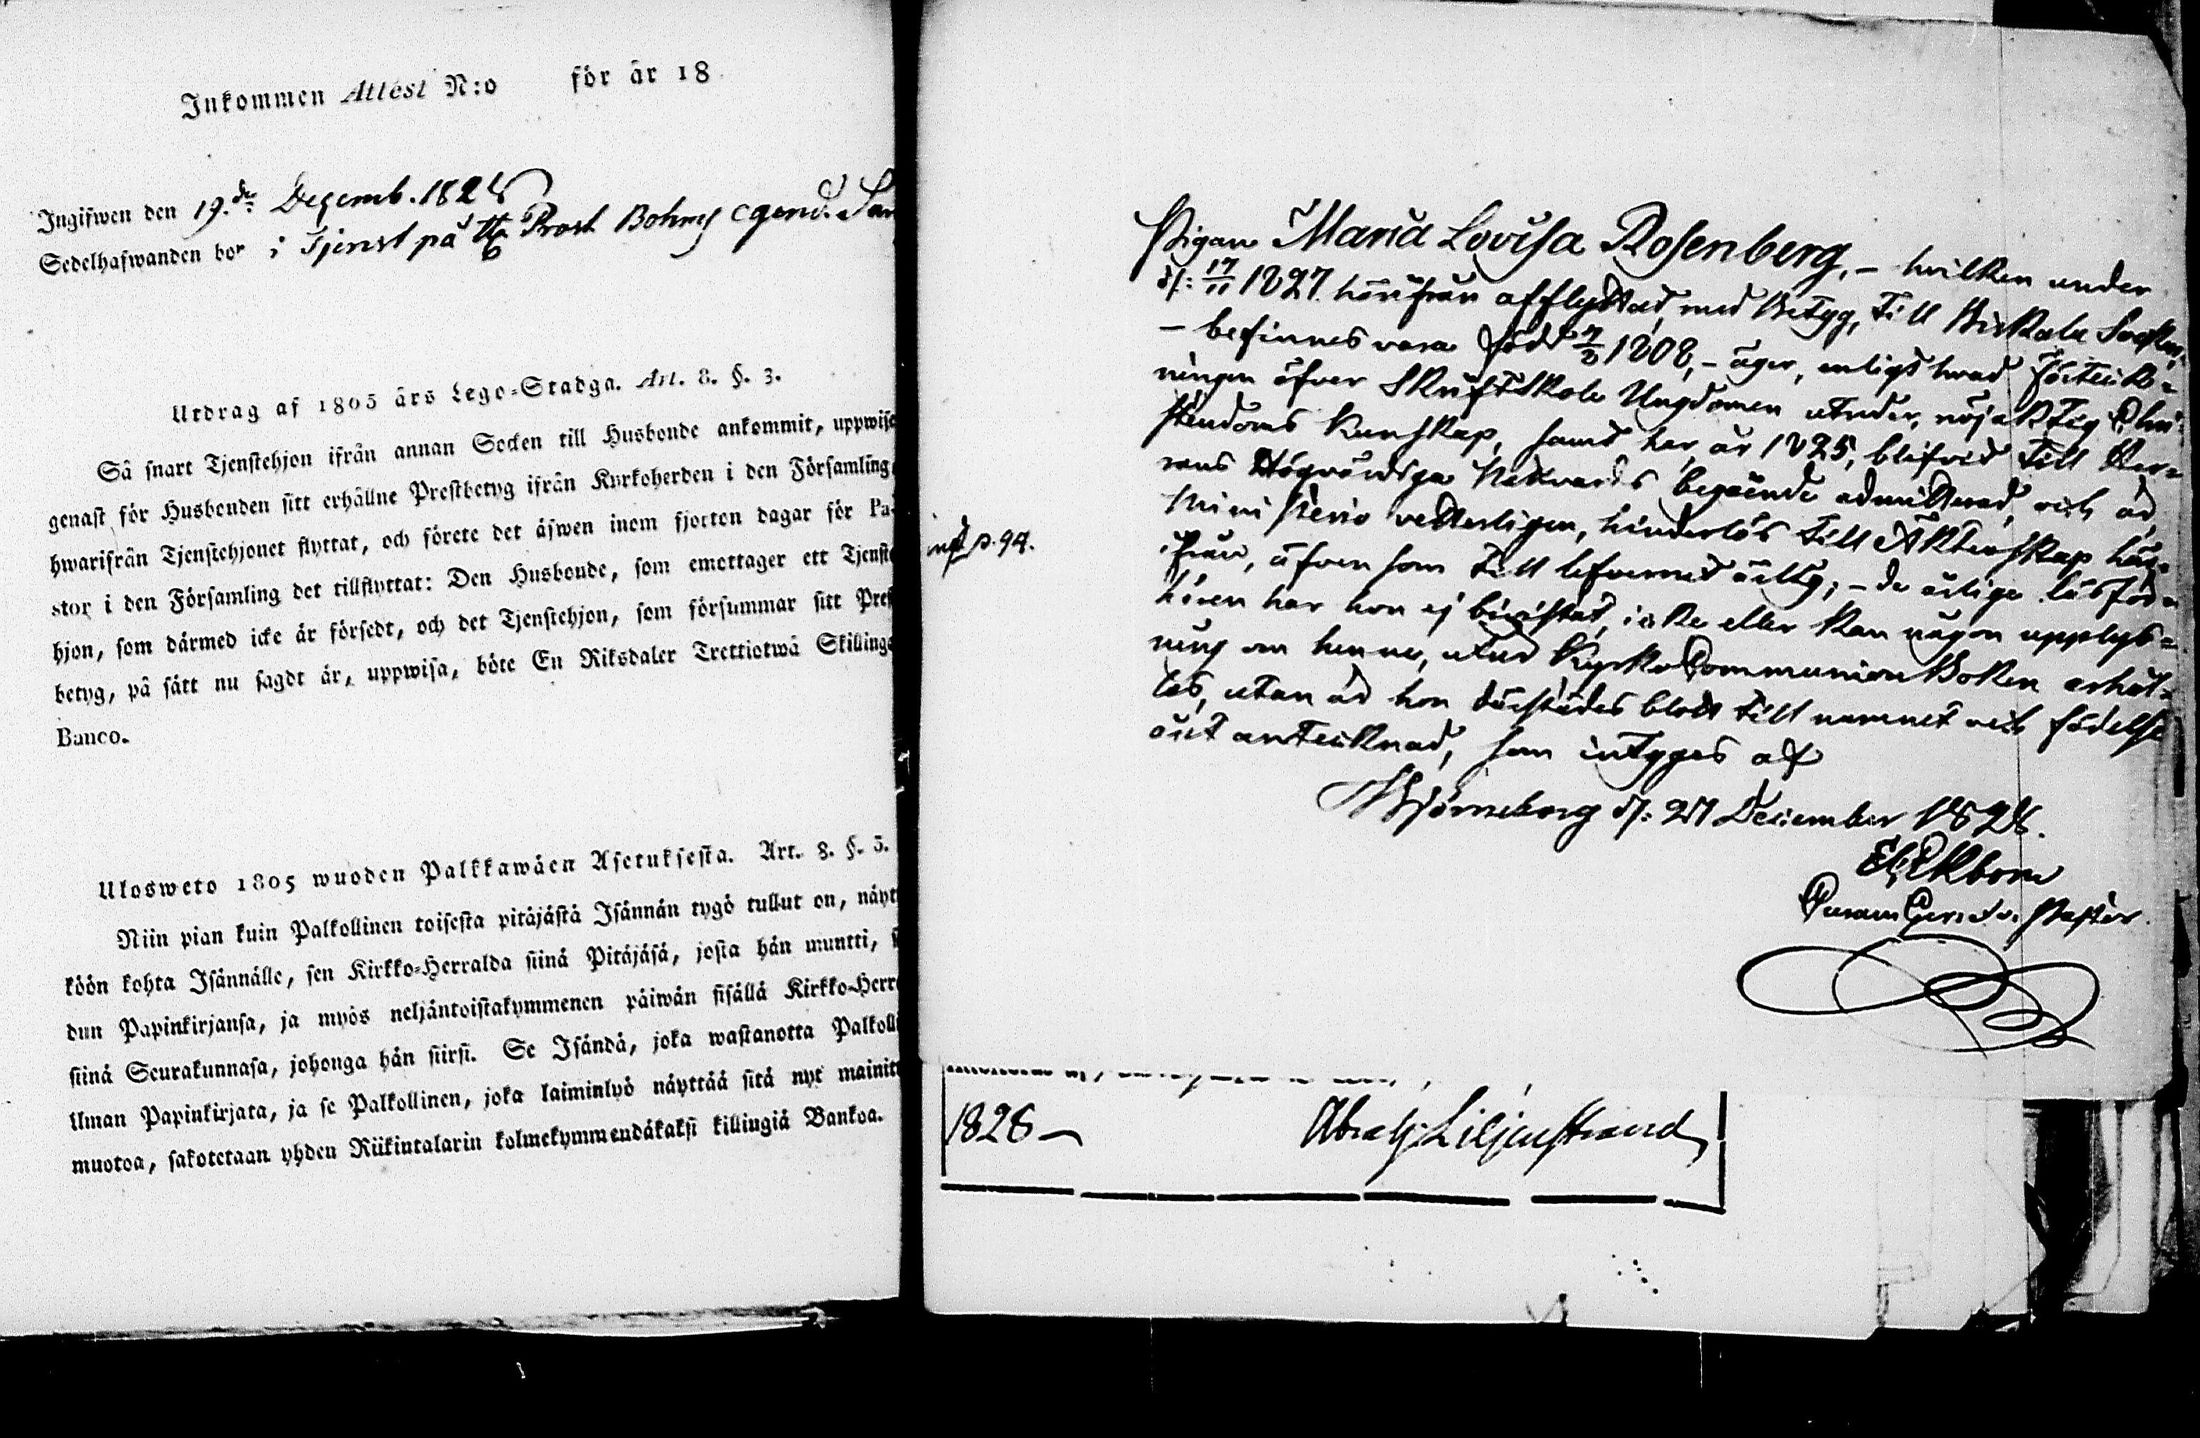 Inkommen Attest N:o för år 18
Ingifwen den 19.de Decemb. 1828
Sedelhafwanden bor i Tjenst på Hr Prost Bohms egend.
Utdrag af 1805 års Lego-Stadga. Art. 8. §. 3.
Så snart Tjenstehjon ifrån annan Socken till Husbonde ankommit, uppwise
genast för Husbonden sitt erhållne Prestbetyg ifrån Kyrkoherden i den Församling,
hwarifrån Tjenstehjonet flyttat, och förete det äfwen inom fjorton dagar för Pa-
stor i den Församling det tillflyttat: Den Husbonde, som emottager ett Tjenste-
hjon, som därmed icke är försedt, och det Tjenstehjon, som försummar sitt Prest-
betyg, på sätt nu sagdt är, uppwisa, böte En Riksdaler Trettiotwå Skillingar
Banco.
Ulosweto 1805 wuoden Palkkawäen Asetuksesta. Art. 8. §. 3.
Niin pian kuin Palkollinen toisesta pitäjästä Isännän tygö tullut on, näyt-
köön kohta Isännälle, sen Kirkko-Herralda siinä Pitäjäsä, josta hän muutti,
dun Papinkirjansa, ja myös neljäntoistakymmenen päiwän sisällä Kirkko-Herr
siinä Seurakunnasa, johonga hän siirsi. Se Isändä, joka wastanotta Palkolli
ilman Papinkirjata, ja se Palkollinen, joka laiminlyö näyttää sitä nyt mainitt
muotoa, sakotetaan yhden Riikintalarin kolmekymmendäkaksi killingiä Bankoa.
Pigan Maria Lovisa Rosenberg, – hvilken under
d: 17/11 1827 härifrån afflyttad, med Betyg, till Birkala Sockn,
– befinnes vara född 1808, – äger, enligt hvad förteck-
ningen öfver Skriftskole Ungdomen utvider, nöjaktig Chri-
stendoms Kunskap, samt har, år 1825, blifvid till Her-
rans Högvördiga Nattvards begående admitterad, och är,
Ministerio vetterligen, hinderlös till Äktenskap här-
ifrån, äfven som till lefvernet ärlig; – de årlige läsför-
hören har hon ej bivistat, icke eller kan någon upplys-
ning om henne, utur Kyrko Communion Boken erhål-
las, utan är hon därstädes blott till namnet och födelse
året antecknad, som intygas af
Björneborg d: 27 December 1828.
Ekbom
Pastor.
p. 94.
1828 –
Abrah: Liljenstrand